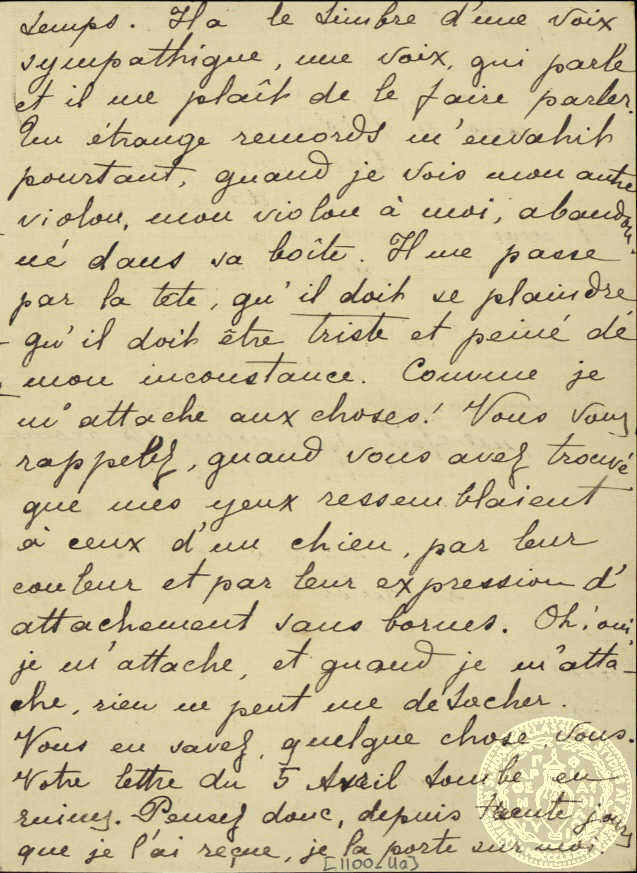 temps. Il a le timbre d'une voix
sympathique, une voix, qui parle
et il me plaît de le faire parler.
Un étrange remords m'envahit
pourtant, quand je vois mon autre
violon, mon violon à moi, abandon-
né dans sa boîte. Il me passe
par la tête, qu'il doit se plaindre
qu'il doit être triste et peiné de
mon inconstance. Comme je
m'attache aux choses! Vous vous
rappelez, quand vous avez trouvé
que mes yeux ressemblaient
à ceux d'un chien, par leur
couleur et par leur expression d'
attachement sans bornes. Oh! oui,
je m'attache, et quand je m'atta-
che, rien ne peut me détacher.
Vous en savez quelque chose, vous.
Votre lettre du 5 Avril tombe en
ruines. Pensez donc, depuis trente jours
que je l'ai reçue, je la porte sur moi.
[1100.4a]